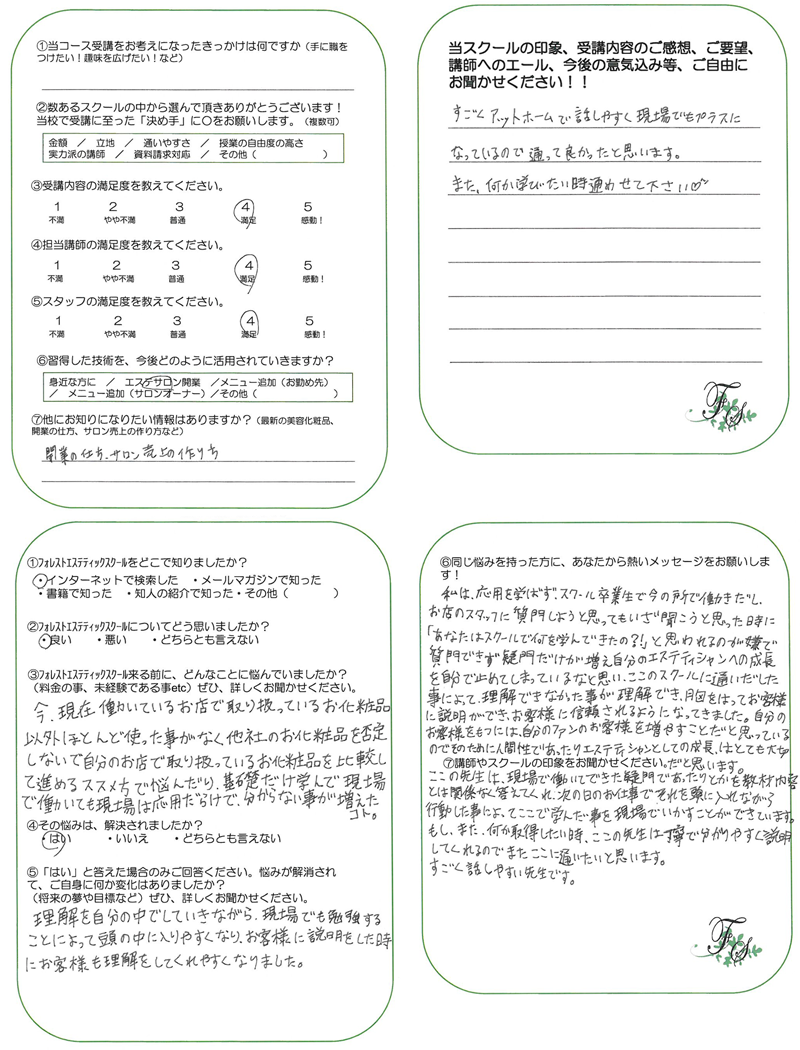 ①当コース受講をお考えになったきっかけは何ですか（手に職を
つけたい！趣味を広げたい！など）
②数あるスクールの中から選んで頂きありがとうございます！
当校で受講に至った「決め手」に〇をお願いします。（複数可）
金額　／　立地　／　通いやすさ　／　授業の自由度の高さ
実力派の講師　／　資料請求対応　／　その他（　　　　　）
③受講内容の満足度を教えてください。
1 2 3 4 5
不満 やや不満 普通 満足 感動！
④担当講師の満足度を教えてください。
1 2 3 4 5
不満 やや不満 普通 満足 感動！
⑤スタッフの満足度を教えてください。
1 2 3 4 5
不満 やや不満 普通 満足 感動！
⑥習得した技術を、今後どのように活用されていきますか？
身近な方に　／　エステサロン開業　／メニュー追加（お勤め先）
／　メニュー追加（サロンオーナー）／その他（　　　　　）
⑦他にお知りになりたい情報はありますか？（最新の美容化粧品、
開業の仕方、サロン売上の作り方など）
開業の仕方、サロン売上の作り方
当スクールの印象、受講内容のご感想、ご要望、
講師へのエール、今後の意気込み等、ご自由に
お聞かせください！！
すごくアットホームで話しやすく現場でもプラスに
なっているので通って良かったと思います。
また、何か学びたい時通わせて下さい♡
FS
①フォレストエステティックスクールをどこで知りましたか？
・インターネットで検索した　・メールマガジンで知った
・書籍で知った　・知人の紹介で知った・その他（　　　　）
②フォレストエステティックスクールについてどう思いましたか？
・良い　・悪い　・どちらとも言えない
③フォレストエステティックスクール来る前に、どんなことに悩んでいましたか？
（料金の事、未経験である事etc）ぜひ、詳しくお聞かせください。
今、現在働いているお店で取り扱っているお化粧品
以外ほとんど使った事がなく他社のお化粧品を否定
しないで自分のお店で取り扱っているお化粧品を比較し
て進めるススメ方で悩んだり、基礎だけ学んで現場
で働いても現場は応用だらけで、分からない事が増えた
コト。
④その悩みは、解決されましたか？
・はい　・いいえ　・どちらとも言えない
⑤「はい」と答えた場合のみご回答ください。悩みが解消され
て、ご自身に何か変化はありましたか？
（将来の夢や目標など）ぜひ、詳しくお聞かせください。
理解を自分の中でしていきながら、現場でも勉強する
ことによって頭の中に入りやすくなり、お客様に説明をした時
にお客様も理解をしてくれやすくなりました。
⑥同じ悩みを持った方に、あなたから熱いメッセージをお願いしま
す！
私は、応用を学ばず、スクール卒業生で今の所で働きだし、
お店のスタッフに質問しようと思ってもいざ聞こうと思った時に
「あなたはスクールで何を学んできたの？！」と思われるのが嫌で
質問できず疑問だけが増え自分のエステティシャンへの成長
を自分で止めてしまっているなと思い、ここのスクールに通いだした
事によって、理解できなかった事が理解でき、胸をはってお客様
に説明ができ、お客様に信頼されるようになってきました。自分の
お客様をもつには、自分のファンのお客様を増やすことだと思っている
のでそのために人間性であったりエステティシャンとしての成長はとても大切
だと思います。
⑦講師やスクールの印象をお聞かせください。
ここの先生は、現場で働いてできた疑問であったりとかを教材内容
とは関係なく答えてくれ、次の日のお仕事でそれを頭に入れながら
行動した事によってここで学んだ事を現場でいかすことができています。
もし、また、何か取得したい時、ここの先生は丁寧で分かりやすく説明
してくれるのでまたここに通いたいと思います。
すごく話しやすい先生です。
FS